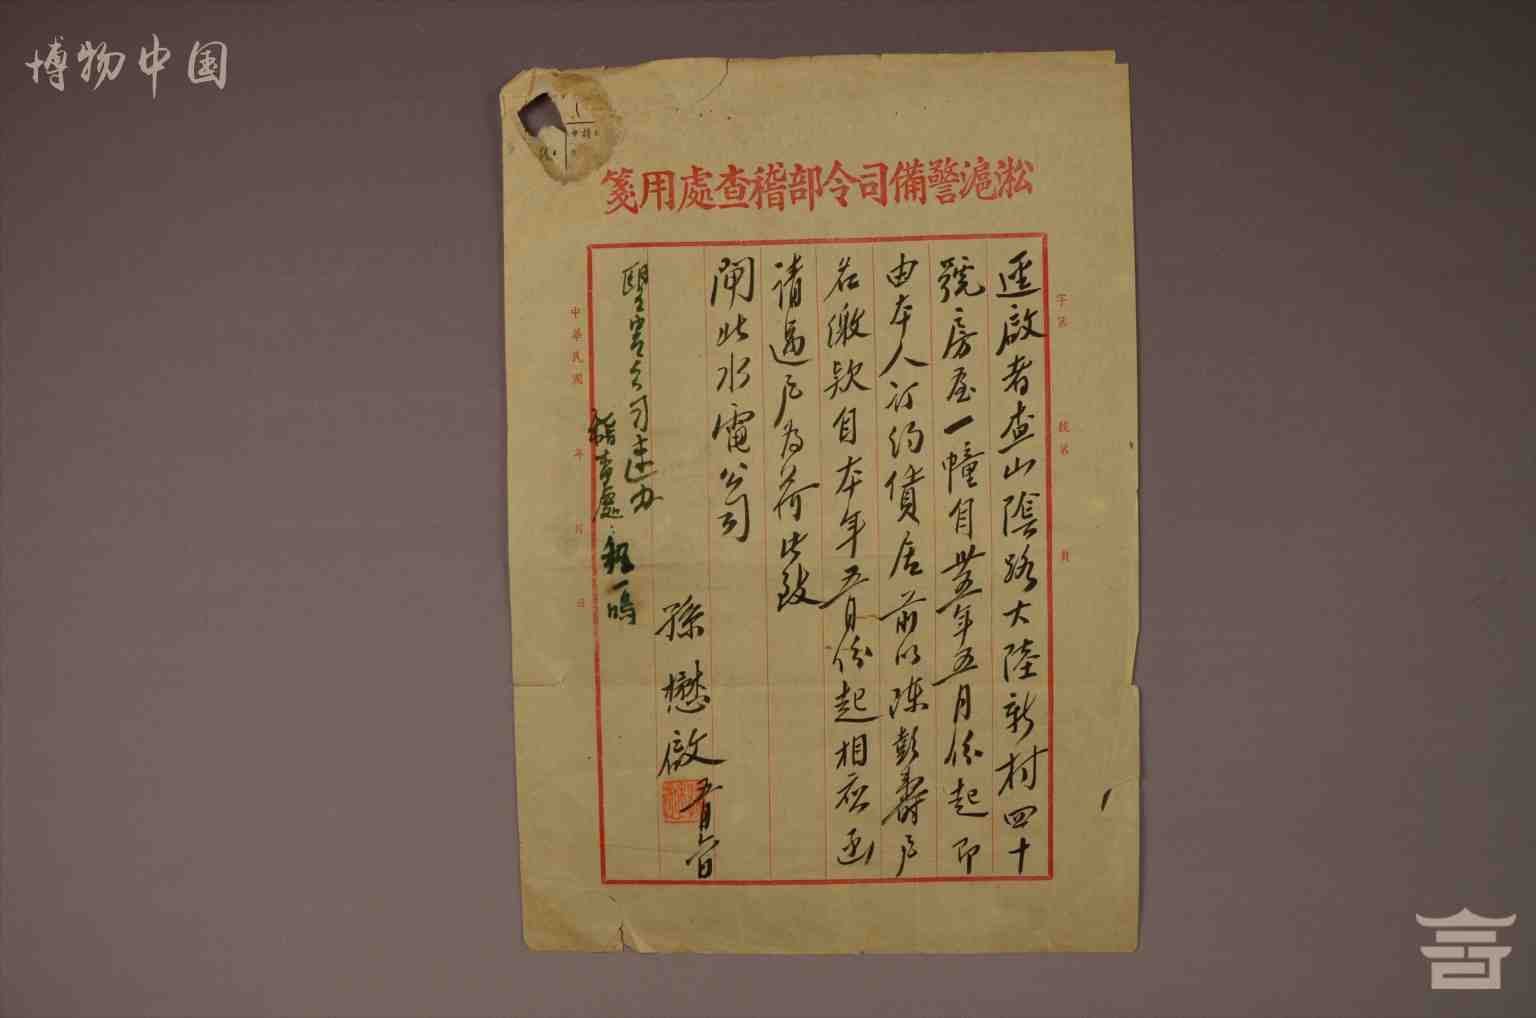 博物中国
淞滬警備司令部稽查處用箋
字第
號第
頁
逕啟者查山陰路大陸新村四十
號房屋一幢自卅五年五月份起即
由本人訂約債居前以陳彭壽戶
名繳款自本年五月份起相应函
请過户为荷此致
閘北水電公司
孫懋啟
五月六日
公司速办
稽查處 程一鳴
中華民國
年
月
日